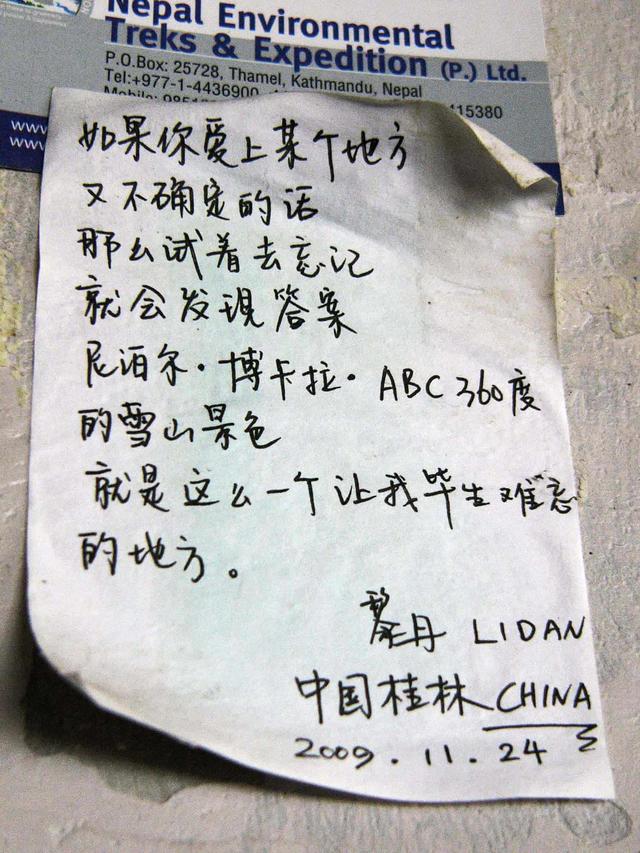 Nepal Environmental
Treks & Expedition (P.) Ltd.
P.O.Box: 25728, Thamel, Kathmandu, Nepal
Tel:+977-1-4436900
415380
www
www
如果你爱上某个地方
又不确定的话
那么试着去忘记
就会发现答案
尼泊尔·博卡拉·ABC 360度
的雪山景色
就是这么一个让我毕生难忘
的地方。
黎丹 LIDAN
中国桂林 CHINA
2009.11.24